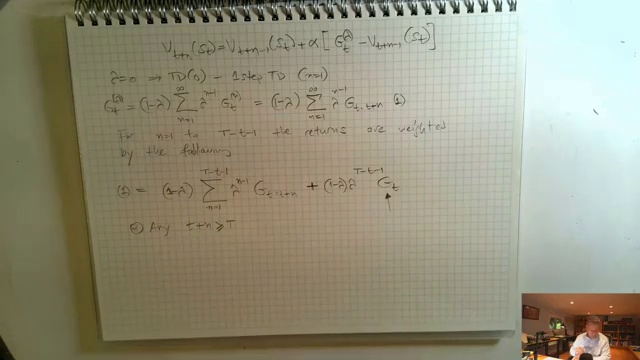 V_{t+n}(S_t) = V_{t+n-1}(S_t) + α [G_t^{(λ)} - V_{t+n-1}(S_t)]
λ=0 ⇒ TD(0) - 1 step TD (n=1)
G_t^{(λ)} = (1-λ) ∑_{n=1}^{∞} λ^{n-1} G_t^{(n)} = (1-λ) ∑_{n=1}^{∞} λ^{n-1} G_{t:t+n} (1)
For n=1 to T-t-1 the returns are weighted
by the following
(1) = (1-λ) ∑_{n=1}^{T-t-1} λ^{n-1} G_{t:t+n} + (1-λ) λ^{T-t-1} G_t
Any t+n ≥ T